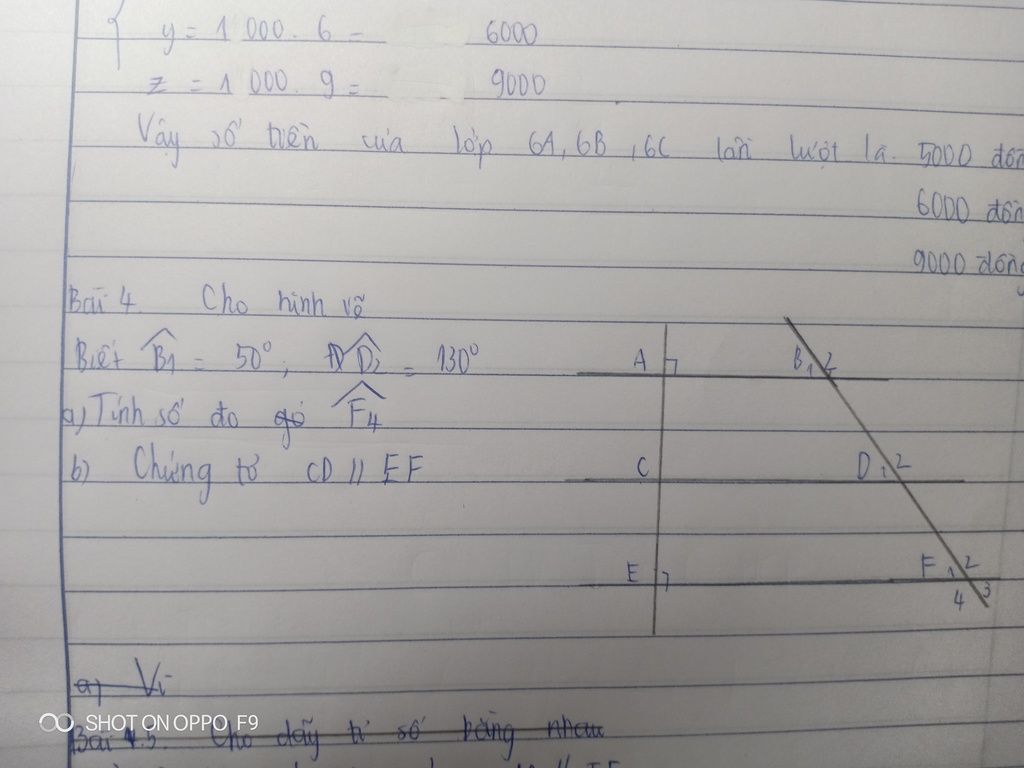 y = 1 000 . 6 = 6000
z = 1 000 . 9 = 9000
Vậy số tiền của lớp 6A, 6B, 6C lần lượt là 5000 đồn
6000 đồn
9000 đồng
Bài 4. Cho hình vẽ
Biết B1 = 50°, D2 = 130°
a) Tính số đo F4
b) Chứng tỏ CD // EF
A B 1 2
C D 1 2
E F 1 2
4 3
a) Vì
Bài 5. Cho dãy tỉ số bằng nhau
SHOT ON OPPO F9